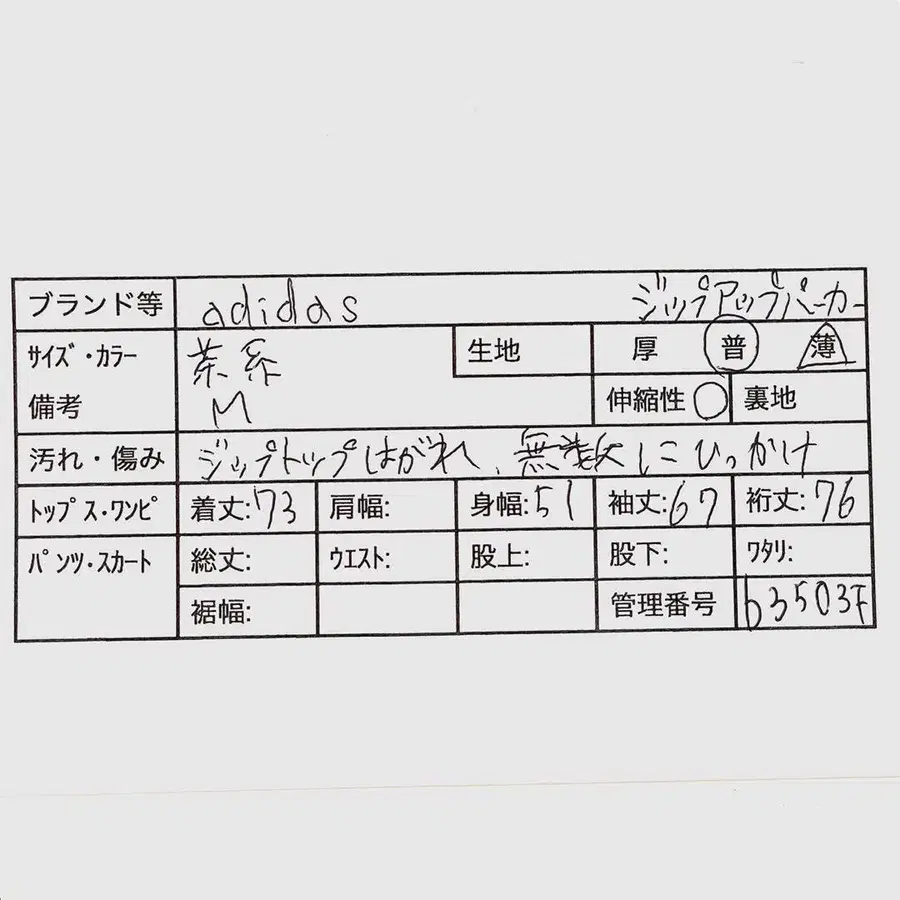 ブランド等 adidas ジップアップパーカー
サイズ・カラー 茶系 生地 厚 普 薄
備考 M 伸縮性 ○ 裏地
汚れ・傷み ジップトップはがれ、無数にひっかけ
トップス・ワンピ 着丈:73 肩幅: 身幅:51 袖丈:67 裄丈:76
パンツ・スカート 総丈: ウエスト: 股上: 股下: ワタリ:
裾幅: 管理番号 b3503F